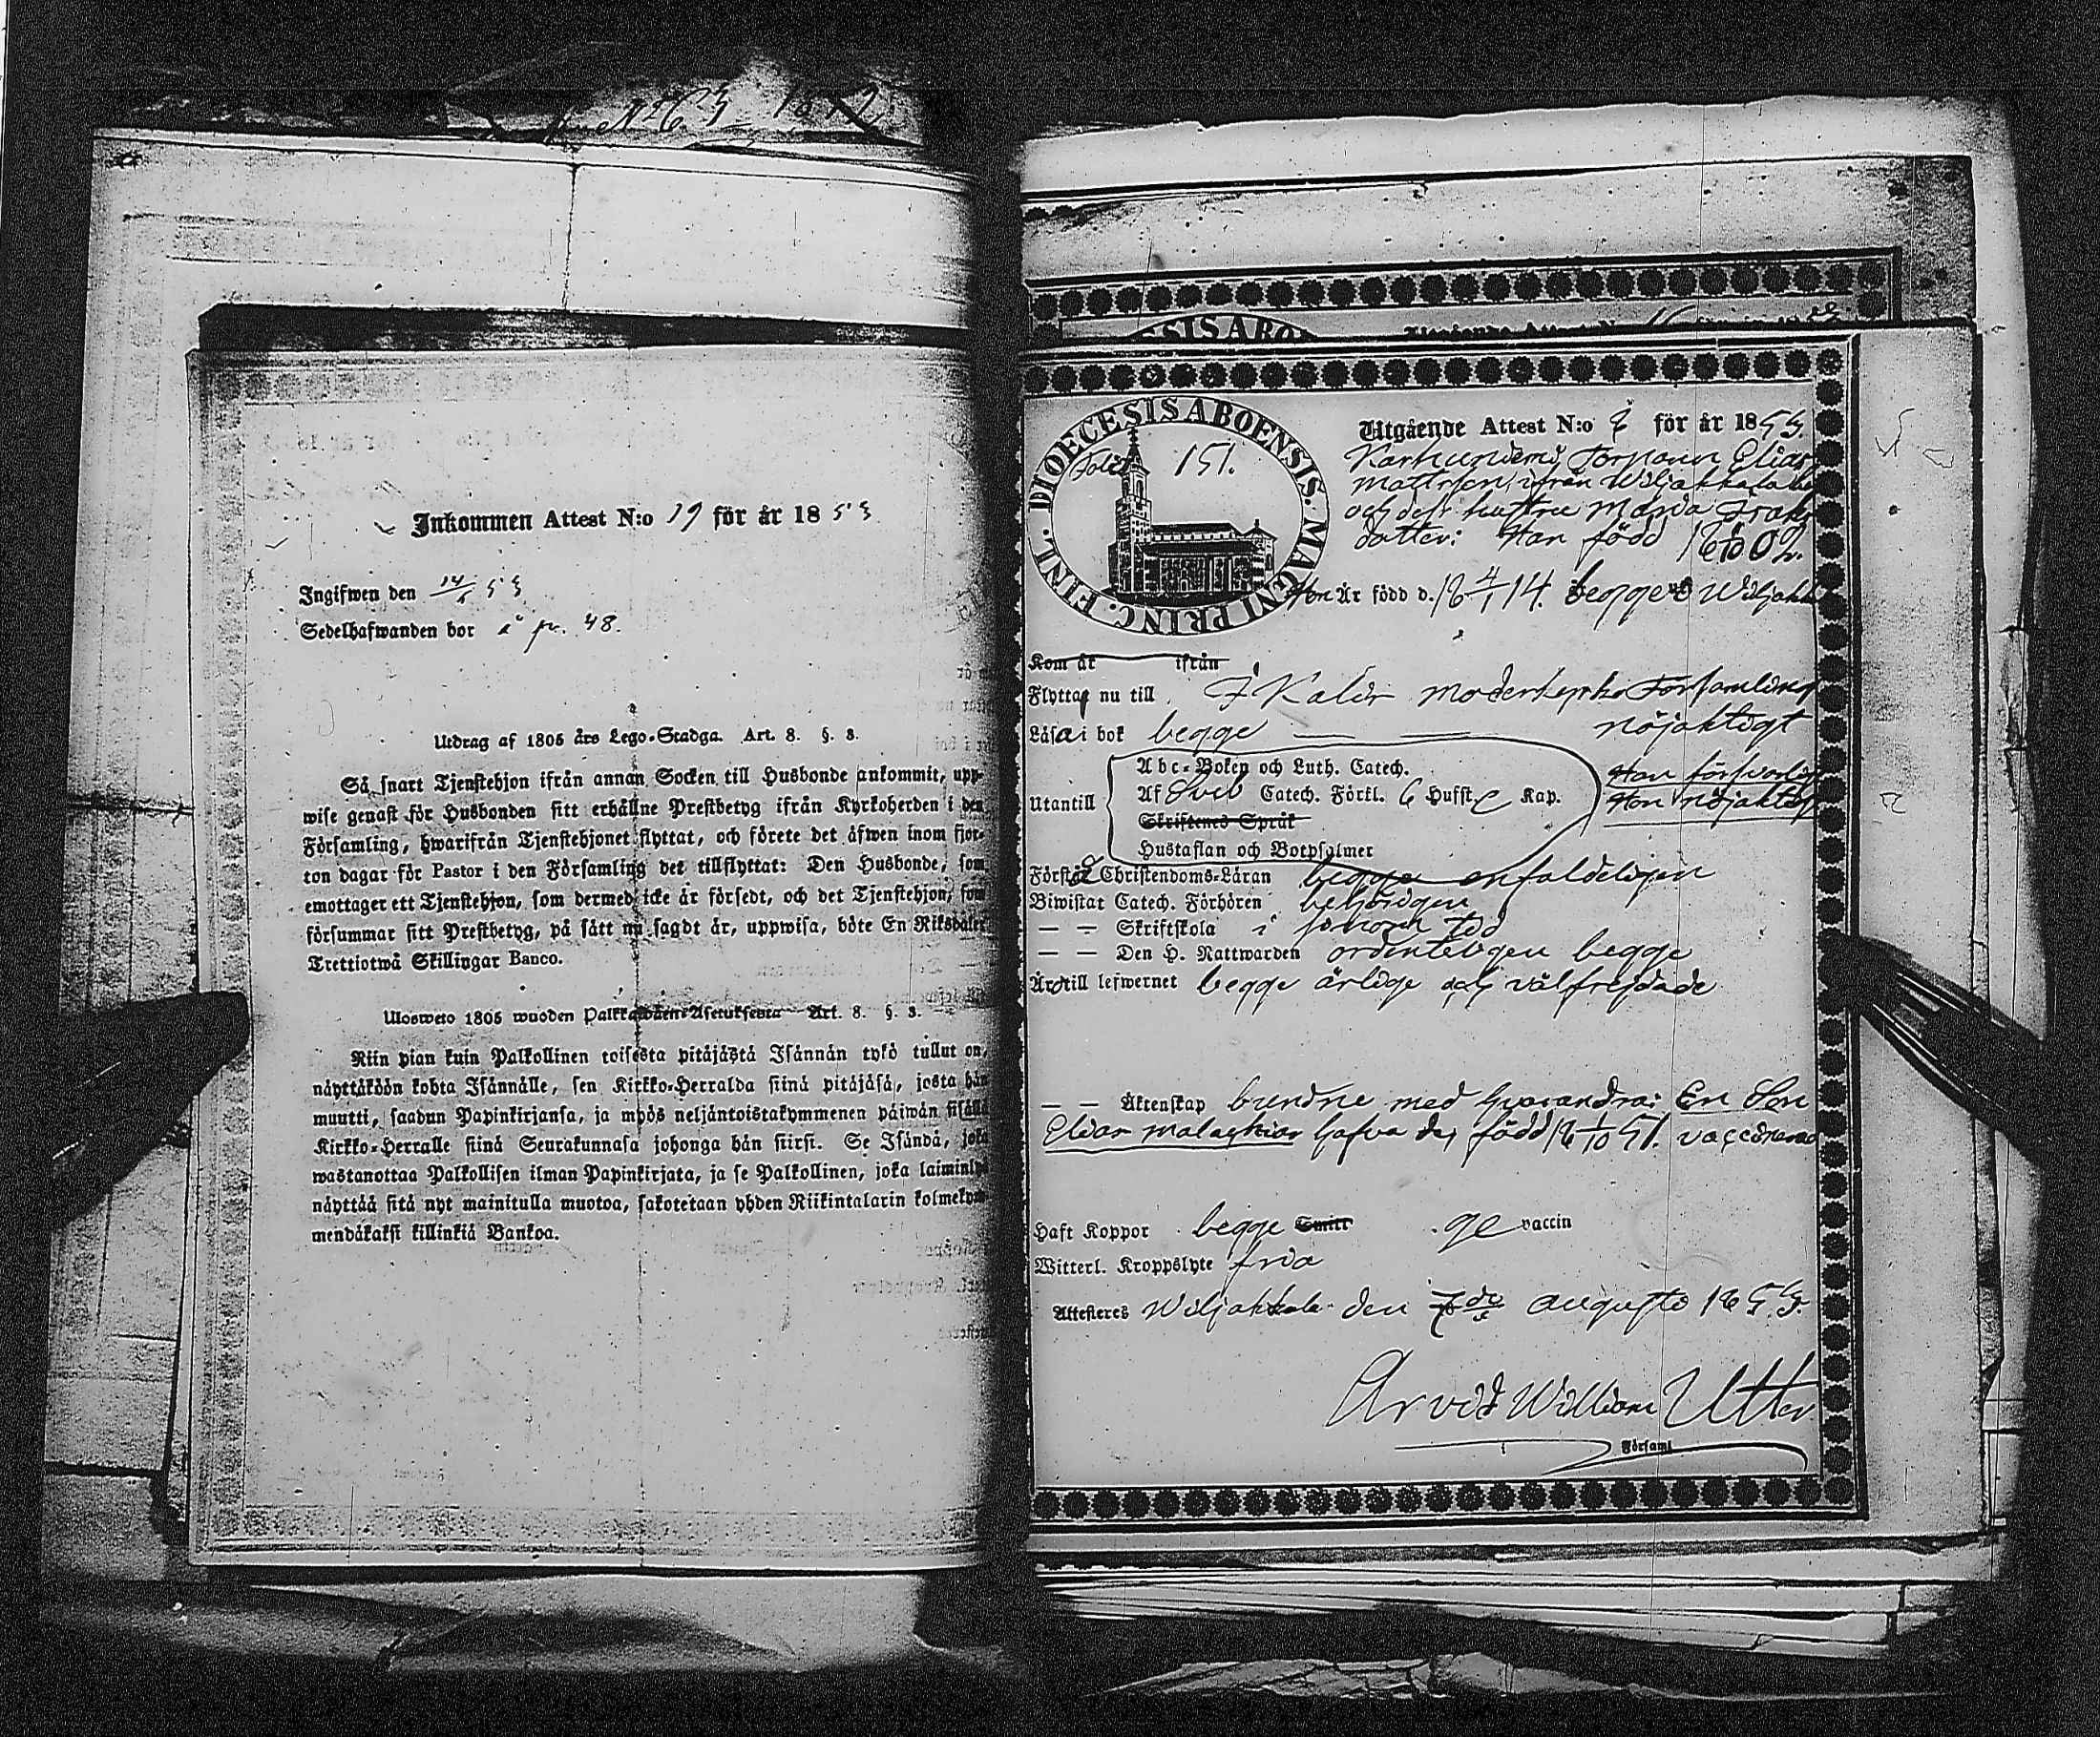 N:o 63 1852
Inkommen Attest N:o 19 för år 1853
Ingifwen den 14/8 53
Sedelhafwanden bor i pr. 48.
Utdrag af 1805 års Lego-Stadga. Art. 8. §. 3.
Så snart Tjenstehjon ifrån annan Socken till Husbonde ankommit, upp-
wise genast för Husbonden sitt erhållne Prestbetyg ifrån Kyrkoherden i den
Församling, hwarifrån Tjenstehjonet flyttat, och förete det äfwen inom fjor-
ton dagar för Pastor i den Församling det tillflyttat: Den Husbonde, som
emottager ett Tjenstehjon, som dermed icke är försedt, och det Tjenstehjon, som
försummar sitt Prestbetyg, på sätt nu sagdt är, uppwisa, böte En Riksdaler
Trettiotwå Skillingar Banco.
Ulosweto 1805 wuoden Palkkawäen-Asetuksesta Art. 8. §. 3.
Niin pian kuin Palkollinen toisesta pitäjästä Isännän tykö tullut on,
näyttäköön kohta Isännälle, sen Kirkko-Herralda siinä pitäjäsä, josta hän
muutti, saadun Papinkirjansa, ja myös neljäntoistakymmenen päiwän sisällä
Kirkko-Herralle siinä Seurakunnasa johonga hän siirsi. Se Isändä, joka
wastanottaa Palkollisen ilman Papinkirjata, ja se Palkollinen, joka laiminlyö
näyttää sitä nyt mainitulla muotoa, sakotetaan yhden Riikintalarin kolmekym-
mendäkaksi killinkiä Bankoa.
DIOECESIS ABOENSIS. MAGNI PRINC. FINL.
Folio 151.
Utgående Attest N:o 8 för år 1853.
Torparen Elias
Mattsson, ifrån Wiljakkala by
och dess hustru Maria Isaks
dotter: Han född 18 02.
Hon Är född d. 18 4/1 14. begge i Wiljakk
Kom år ifrån
Flytta nu till I Kalis moderkyrko Församling
Läsa i bok begge — — nöjaktigt
Utantill
Abc-Boken och Luth. Catech.
Af Sveb Catech. Förkl. 6 Hufst. Kap.
Skriftenes Språk
Hustaflan och Botpsalmer
Han försvarlig
Hon nöjaktig
Förstå Christendoms-Läran begge enfaldeligen
Biwistat Catech. Förhören behörigen
— — Skriftskola i sinom tid
— — Den H. Nattwarden ordenteligen begge
Äro till lefwernet begge ärlige och välfrejdade
— — Äktenskap bundne med hvarandra: En Son
Elias Malachias hafva de, född 18 1/10 51. vaccinerad
Haft Koppor begge Smitt ge vaccin
Witterl. Kroppslyte fria
Attesteres Wiljakkala den 7de Augusti 1853.
Arvid William Utter
Församl